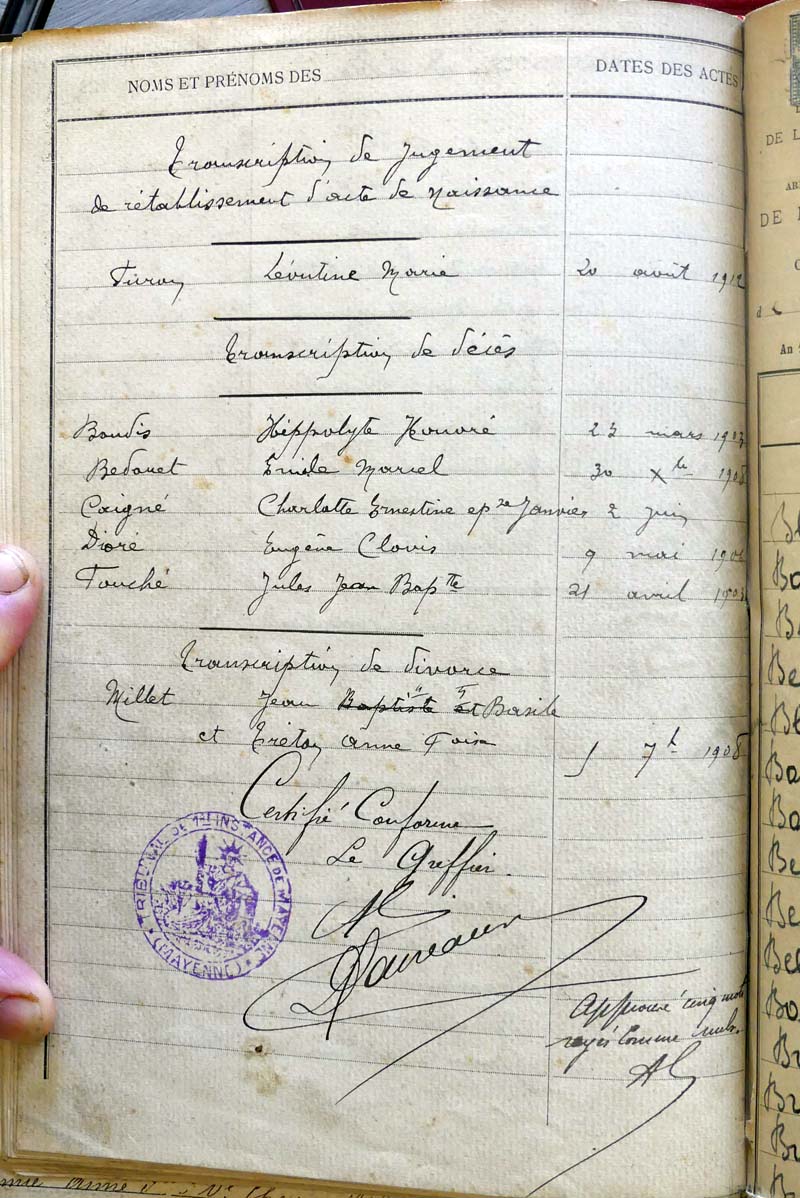 NOMS ET PRÉNOMS DES
DATES DES ACTES
Transcription de Jugement
de rétablissement d'acte de Naissance
Léontine Marie 20 août 1912
Transcription de décès
Boudis Hippolyte Honoré 23 mars 1903
Bedouet Emile Marcel 30 Xbre 1908
Caigné Charlotte Ernestine epse Janvier 2 Juin
Dioré Eugène Clovis 9 mai 190
Touché Jules Jean Bapte 21 avril 190
Transcription de divorce
Millet Jean Baptiste et Basile
et Tréton Anne Foise 5 7b 1908
Certifié Conforme
Le Greffier
TRIBUNAL DE 1RE INSTANCE DE MAYENNE
(MAYENNE)
Approuvé cinq mots
rayés comme nuls.
DE L
AR
DE
An
B
Ba
B
Be
Bl
Ba
Ba
Be
Be
Bel
Bo
Br
Br
Br